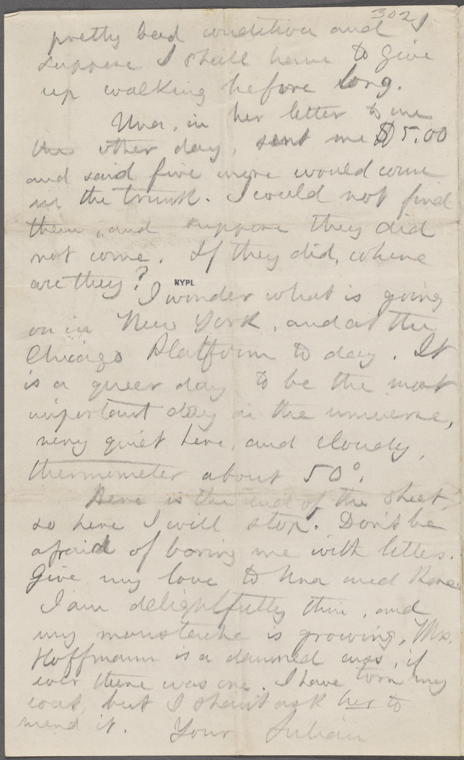 302
pretty bad condition and I
suppose I shall have to give
up walking before long.
Una, in her letter to me
the other day, sent me $5.00
and said five more would come
in the trunk. I could not find
them, and suppose they did
not come. If they did, where
are they?
NYPL
I wonder what is going
on in New York, and at the
Chicago Platform to day. It
is a queer day to be the most
important day in the universe,
very quiet here, and cloudy,
thermometer about 50°.
Here is the end of the sheet,
so here I will stop. Don't be
afraid of boring me with letters.
Give my love to Una and Rose.
I am delightfully thin, and
my moustache is growing, Mrs.
Hoffmann is a damned cuss, if
ever there was one. I have torn my
coat, but I shan't ask her to
mend it. Your Julian